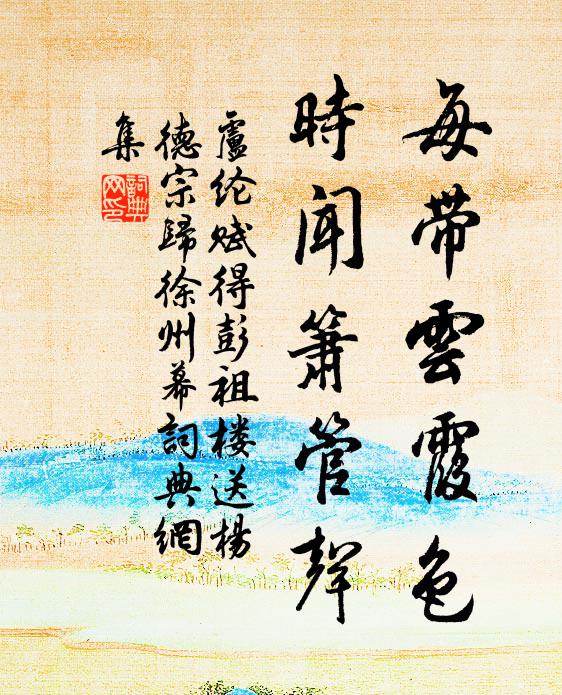 每带雲霞色
時聞簫管聲
盧纶赋得彭祖楼送楊
德宗歸徐州幕詞典網
集
詞典网印